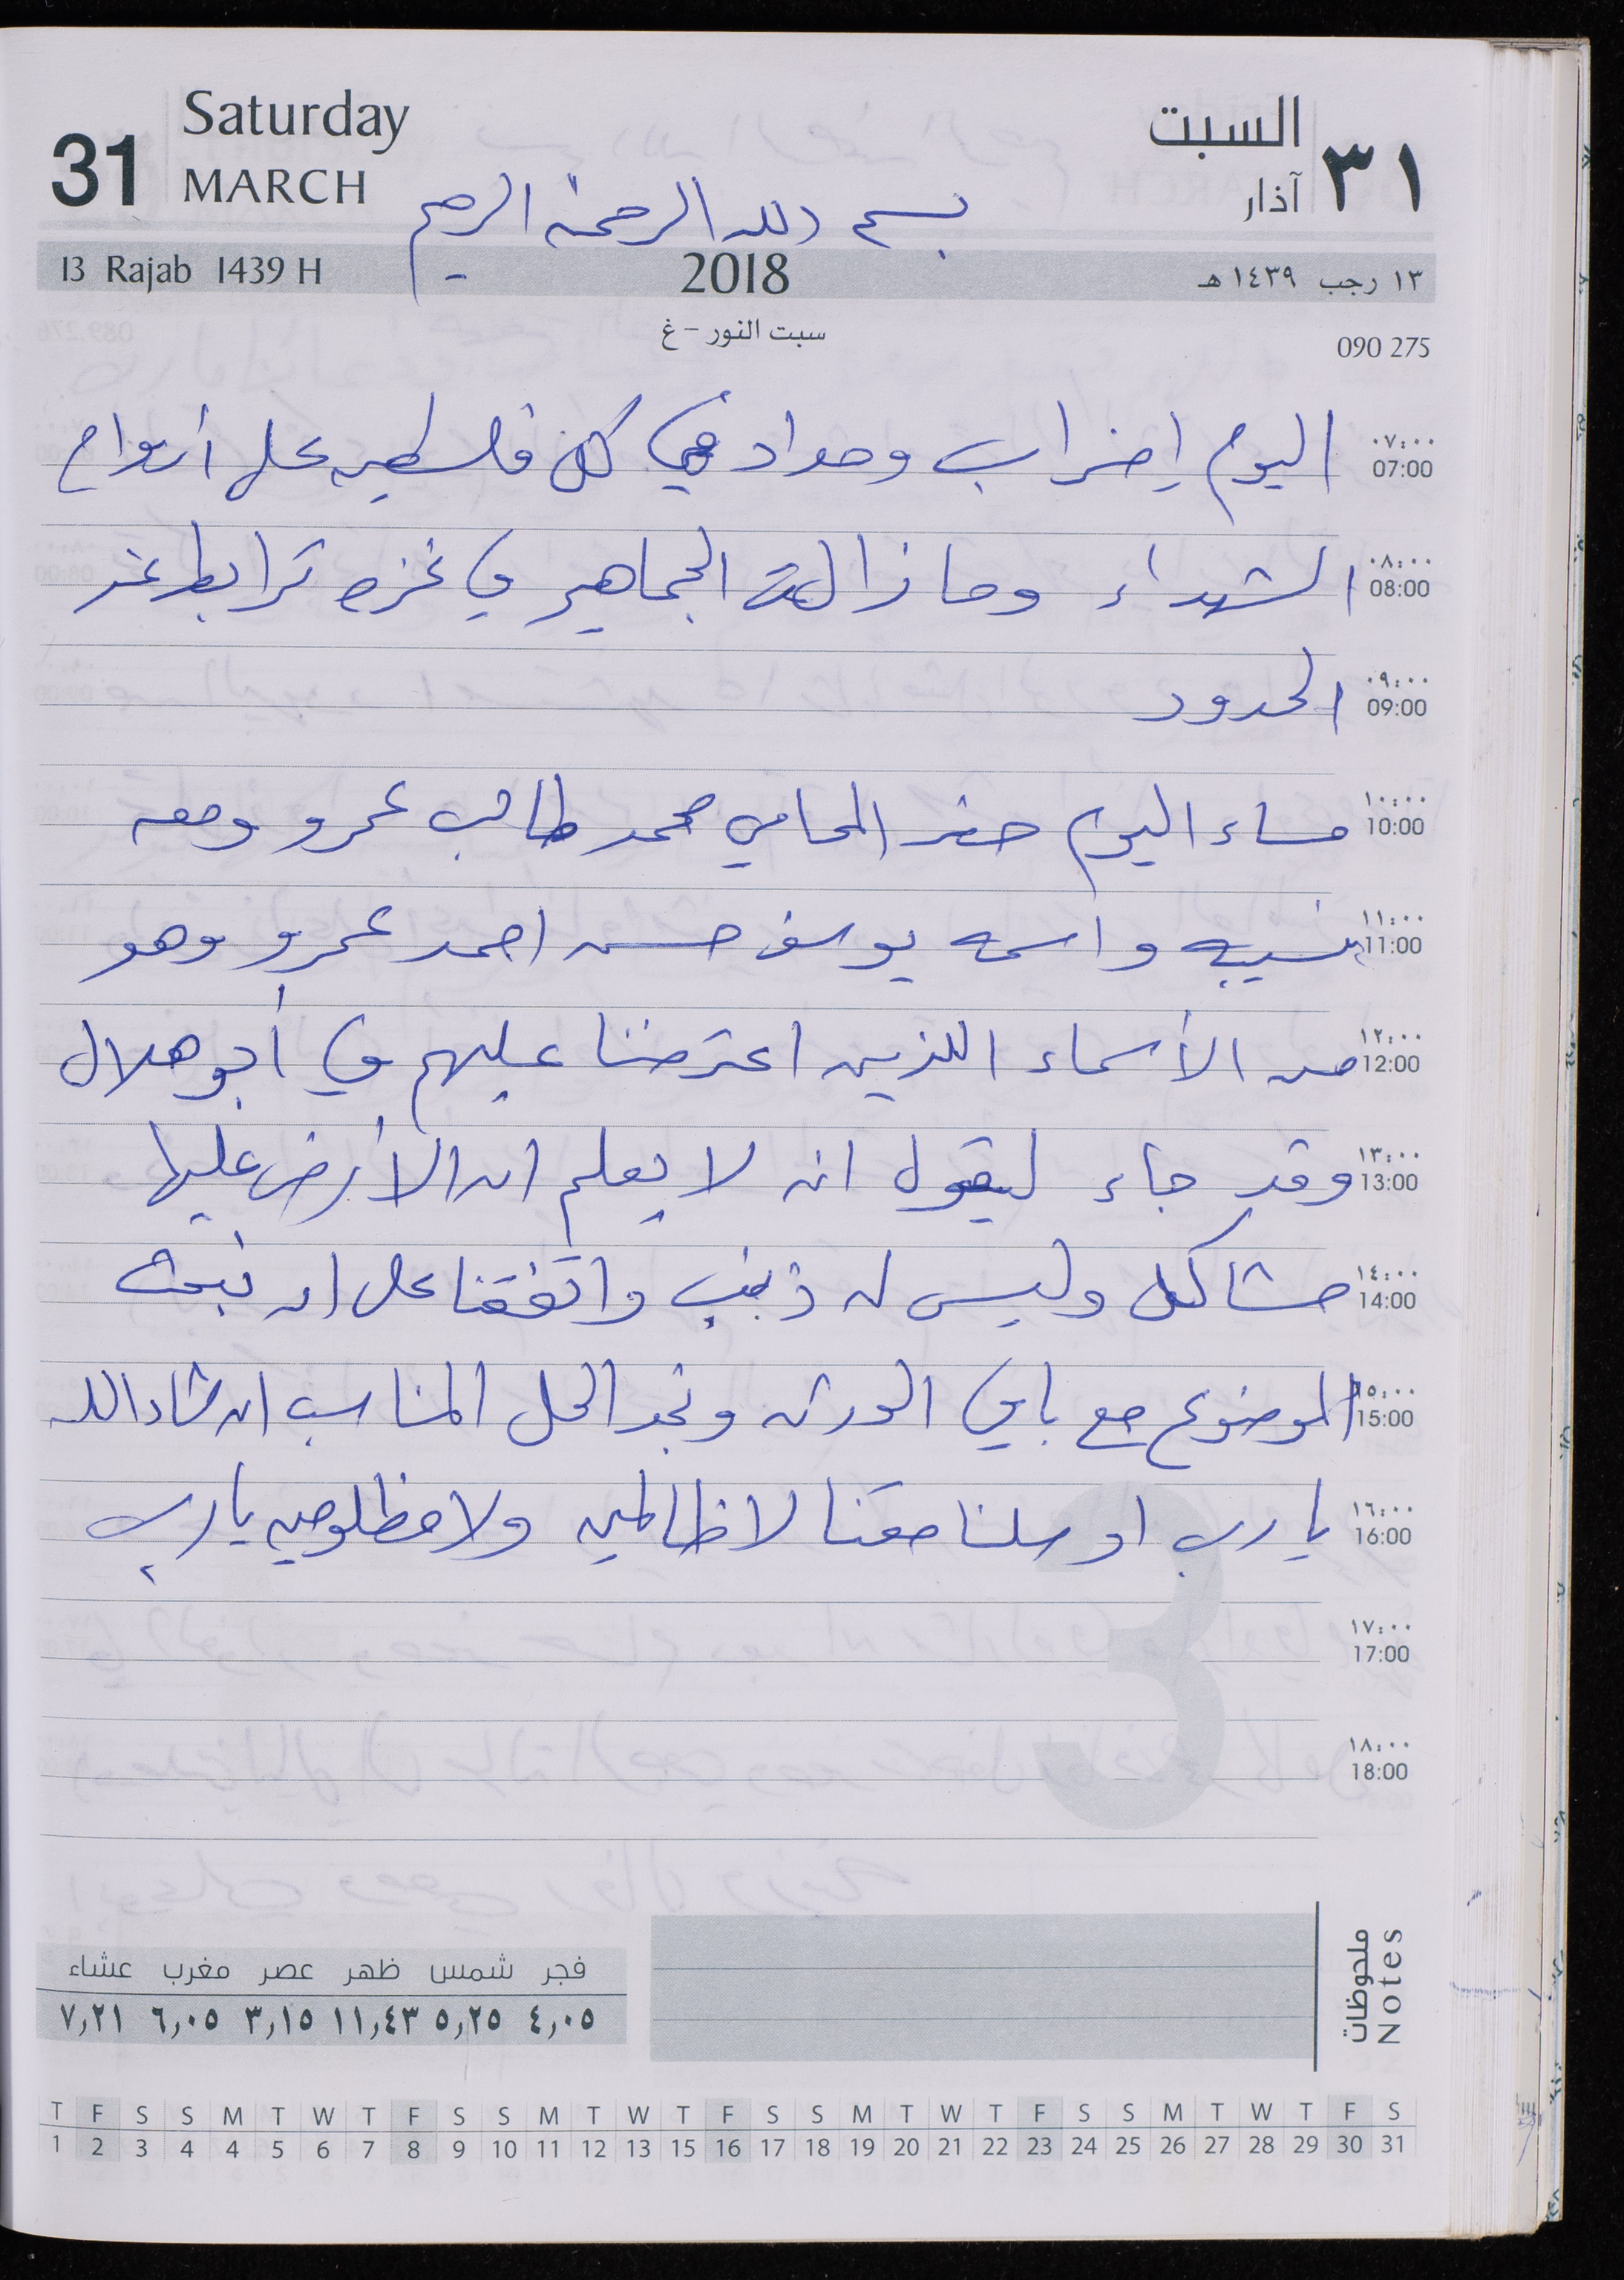 31 Saturday MARCH السبت ٣١ آذار
بسم الله الرحمن الرحيم
13 Rajab 1439 H 2018 ١٣ رجب ١٤٣٩ هـ
سبت النور - غ 090 275
٠٧:٠٠ 07:00 اليوم إضراب وحداد في كل فلسطين على أرواح
٠٨:٠٠ 08:00 الشهداء وما زالة الجماهير في غزه ترابط عند
٠٩:٠٠ 09:00 الحدود
١٠:٠٠ 10:00 مساء اليوم حضر المحامي محمد طالب عمرو ومعه
١١:٠٠ 11:00 نسيبه واسمه يوسف حسن احمد عمرو وهو
١٢:٠٠ 12:00 من الأسماء اللذين اعترضنا عليهم في أبو هلال
١٣:٠٠ 13:00 وقد جاء ليقول انه لا يعلم ان الأرض عليها
١٤:٠٠ 14:00 مشاكل وليس له ذنب واتفقنا على ان نبحث
١٥:٠٠ 15:00 الموضوع مع باقي الورثه ونجد الحل المناسب ان شاء الله
١٦:٠٠ 16:00 يا رب اوصلنا حقنا لا ظالمين ولا مظلومين يا رب
١٧:٠٠ 17:00
١٨:٠٠ 18:00
3
ملحوظات Notes
فجر شمس ظهر عصر مغرب عشاء
٤,٠٥ ٥,٢٥ ١١,٤٣ ٣,١٥ ٦,٠٥ ٧,٢١
T F S S M T W T F S S M T W T F S S M T W T F S S M T W T F S
1 2 3 4 4 5 6 7 8 9 10 11 12 13 15 16 17 18 19 20 21 22 23 24 25 26 27 28 29 30 31